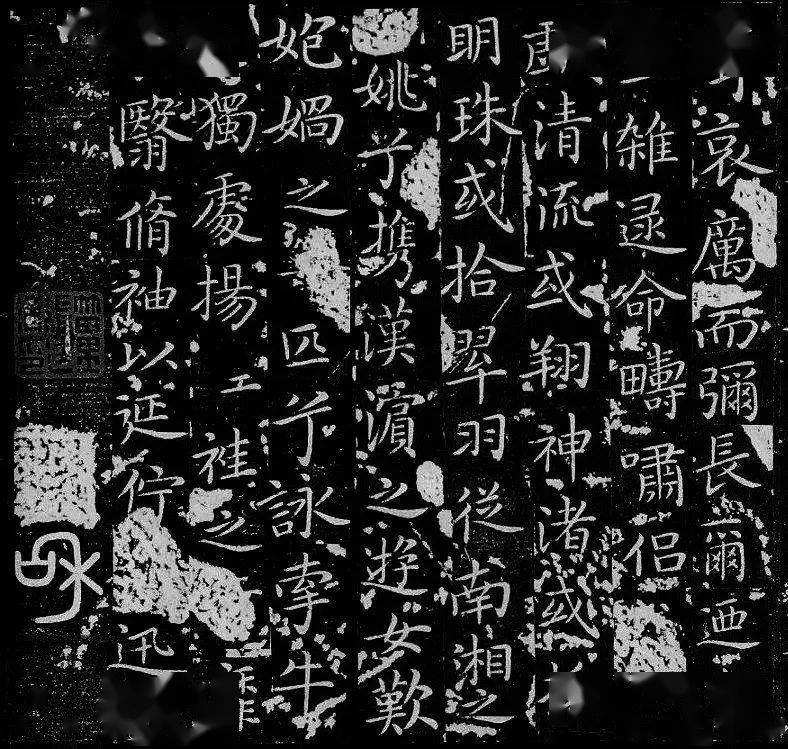 哀厲而彌長爾迺
雜遝命疇嘯侶
清流或翔神渚或
明珠或拾翠羽從南湘之
姚兮攜漢濱之遊女歎
媧之匹兮詠牽牛
獨處揚袿之
翳脩袖以延佇迅